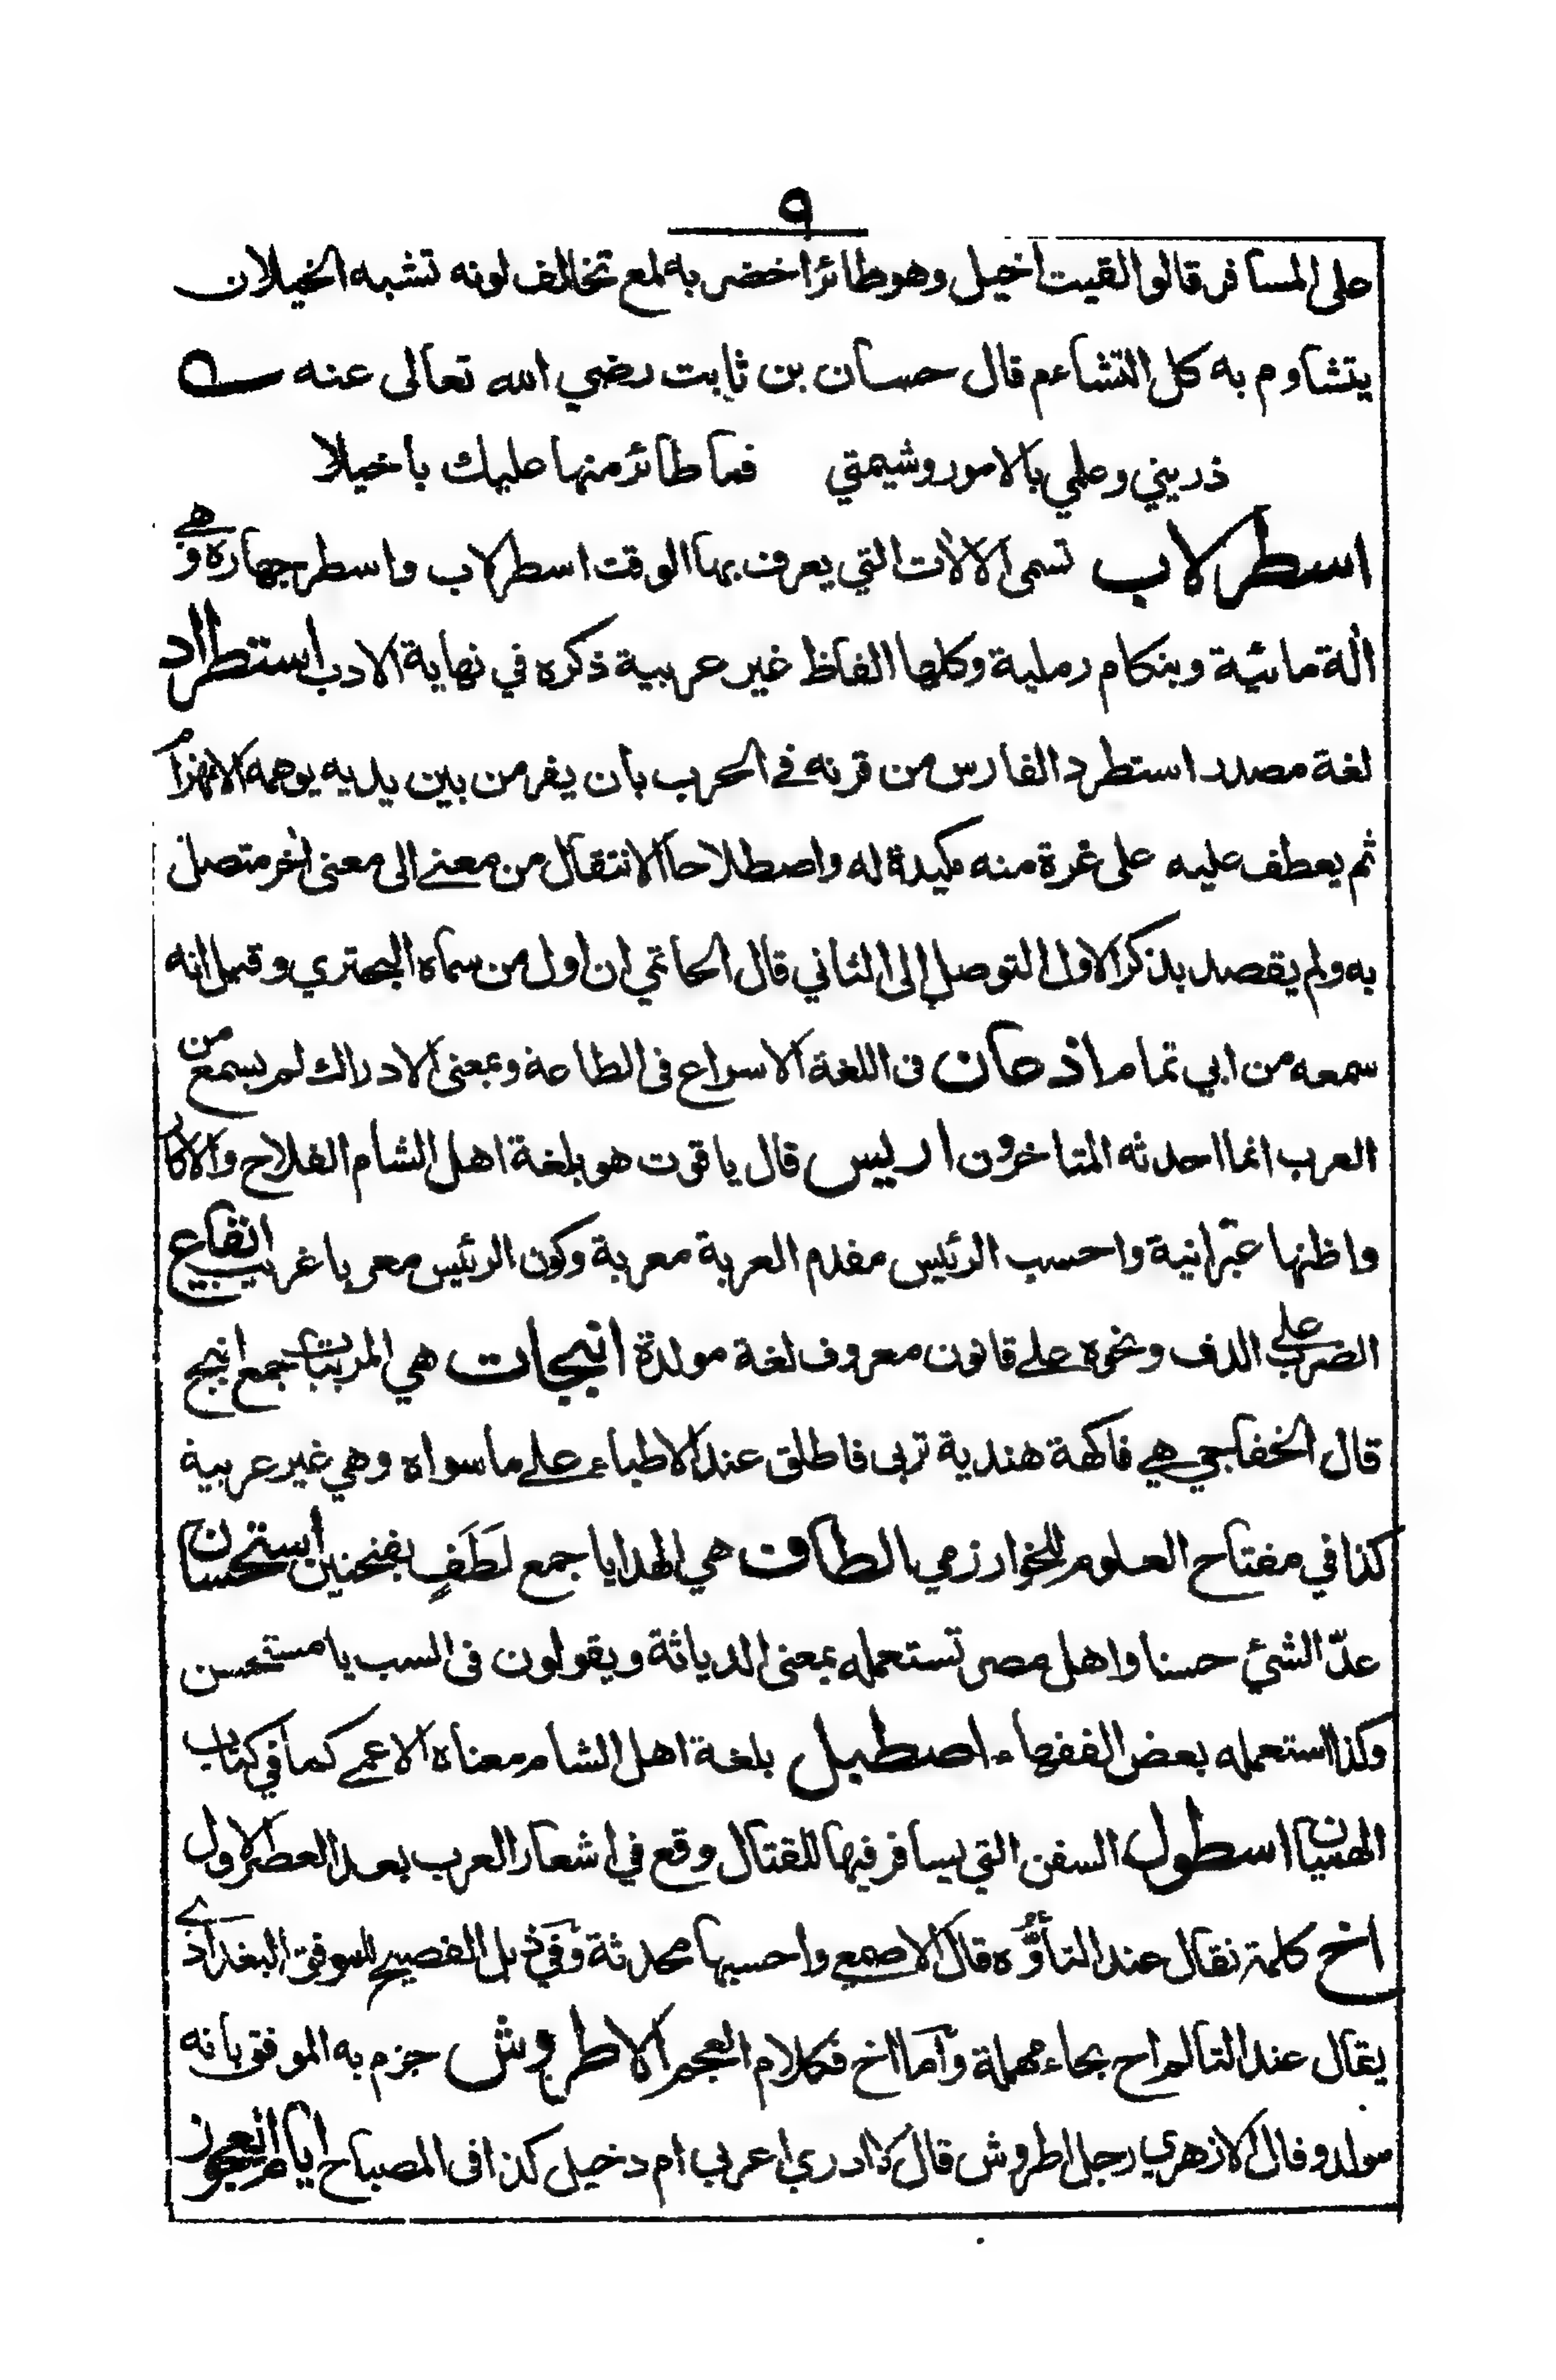 ٩
على المسافر قالوا لقيت اخيل وهو طائر اخضر به لمع تخالف لونه تشبه الخيلان
يتشاوم به كل التشاءم قال حسان بن ثابت رضي الله تعالى عنه
ذريني وعلمي بالامور وشيمتي فما طائر منها عليك باخيلا
اسطرلاب تسمى الالات التي يعرف بها الوقت اسطرلاب واسطرجهاره وهي
الة مائية وبنكام رملية وكلها الفاظ غير عربية ذكره في نهاية الادب استطراد
لغة مصدر استطرد الفارس من قرنه في الحرب بان يفر من بين يديه يوهمه الانهزام
ثم يعطف عليه على غرة منه مكيدة له واصطلاحا الانتقال من معنى الى معنى اخر متصل
به ولم يقصد بذكر الاول التوصل إلى الثاني قال الحاتمي ان اول من سماه البحتري وقيل انه
سمعه من ابي تمام اذعان في اللغة الاسراع في الطاعة وبمعنى الادراك لم يسمع من
العرب انما احدثه المتاخرون اريس قال ياقوت هو بلغة اهل الشام الفلاح والاكار
واظنها عبرانية واحسب الرئيس مقدم العربة معربة وكون الرئيس معربا غريب ايقاع
الضرب على الدف ونحوه على قانون معروف لغة مولدة انبجات هي المربيات جمع انبج
قال الخفاجي هي فاكهة هندية تربى فاطلق عند الاطباء على ما سواه وهي غير عربية
كذا في مفتاح العلوم للخوارزمي الطاف هي الهدايا جمع لَطَفٍ بفتحتين استحسان
عدّ الشئ حسنا واهل مصر تستعمله بمعنى الدياثة ويقولون في السب يا مستحسن
وكذا استعمله بعض الفقهاء اصطبل بلغة اهل الشام معناه الاعمى كما في كتاب
الهميان اسطول السفن التي يسافر فيها للقتال وقع في اشعار العرب بعد العصر الاول
اخ كلمة تقال عند التأوُّه قال الاصمعي واحسبها محدثة وفي ذيل الفصيح للموفق البغدادي
يقال عند التالم اح بحاء مهملة واما اخ فكلام العجم الاطروش جزم به الموفق بانه
مولد وقال الازهري رجل اطروش قال لا ادري اعربي ام دخيل كذا في المصباح ايام العجوز